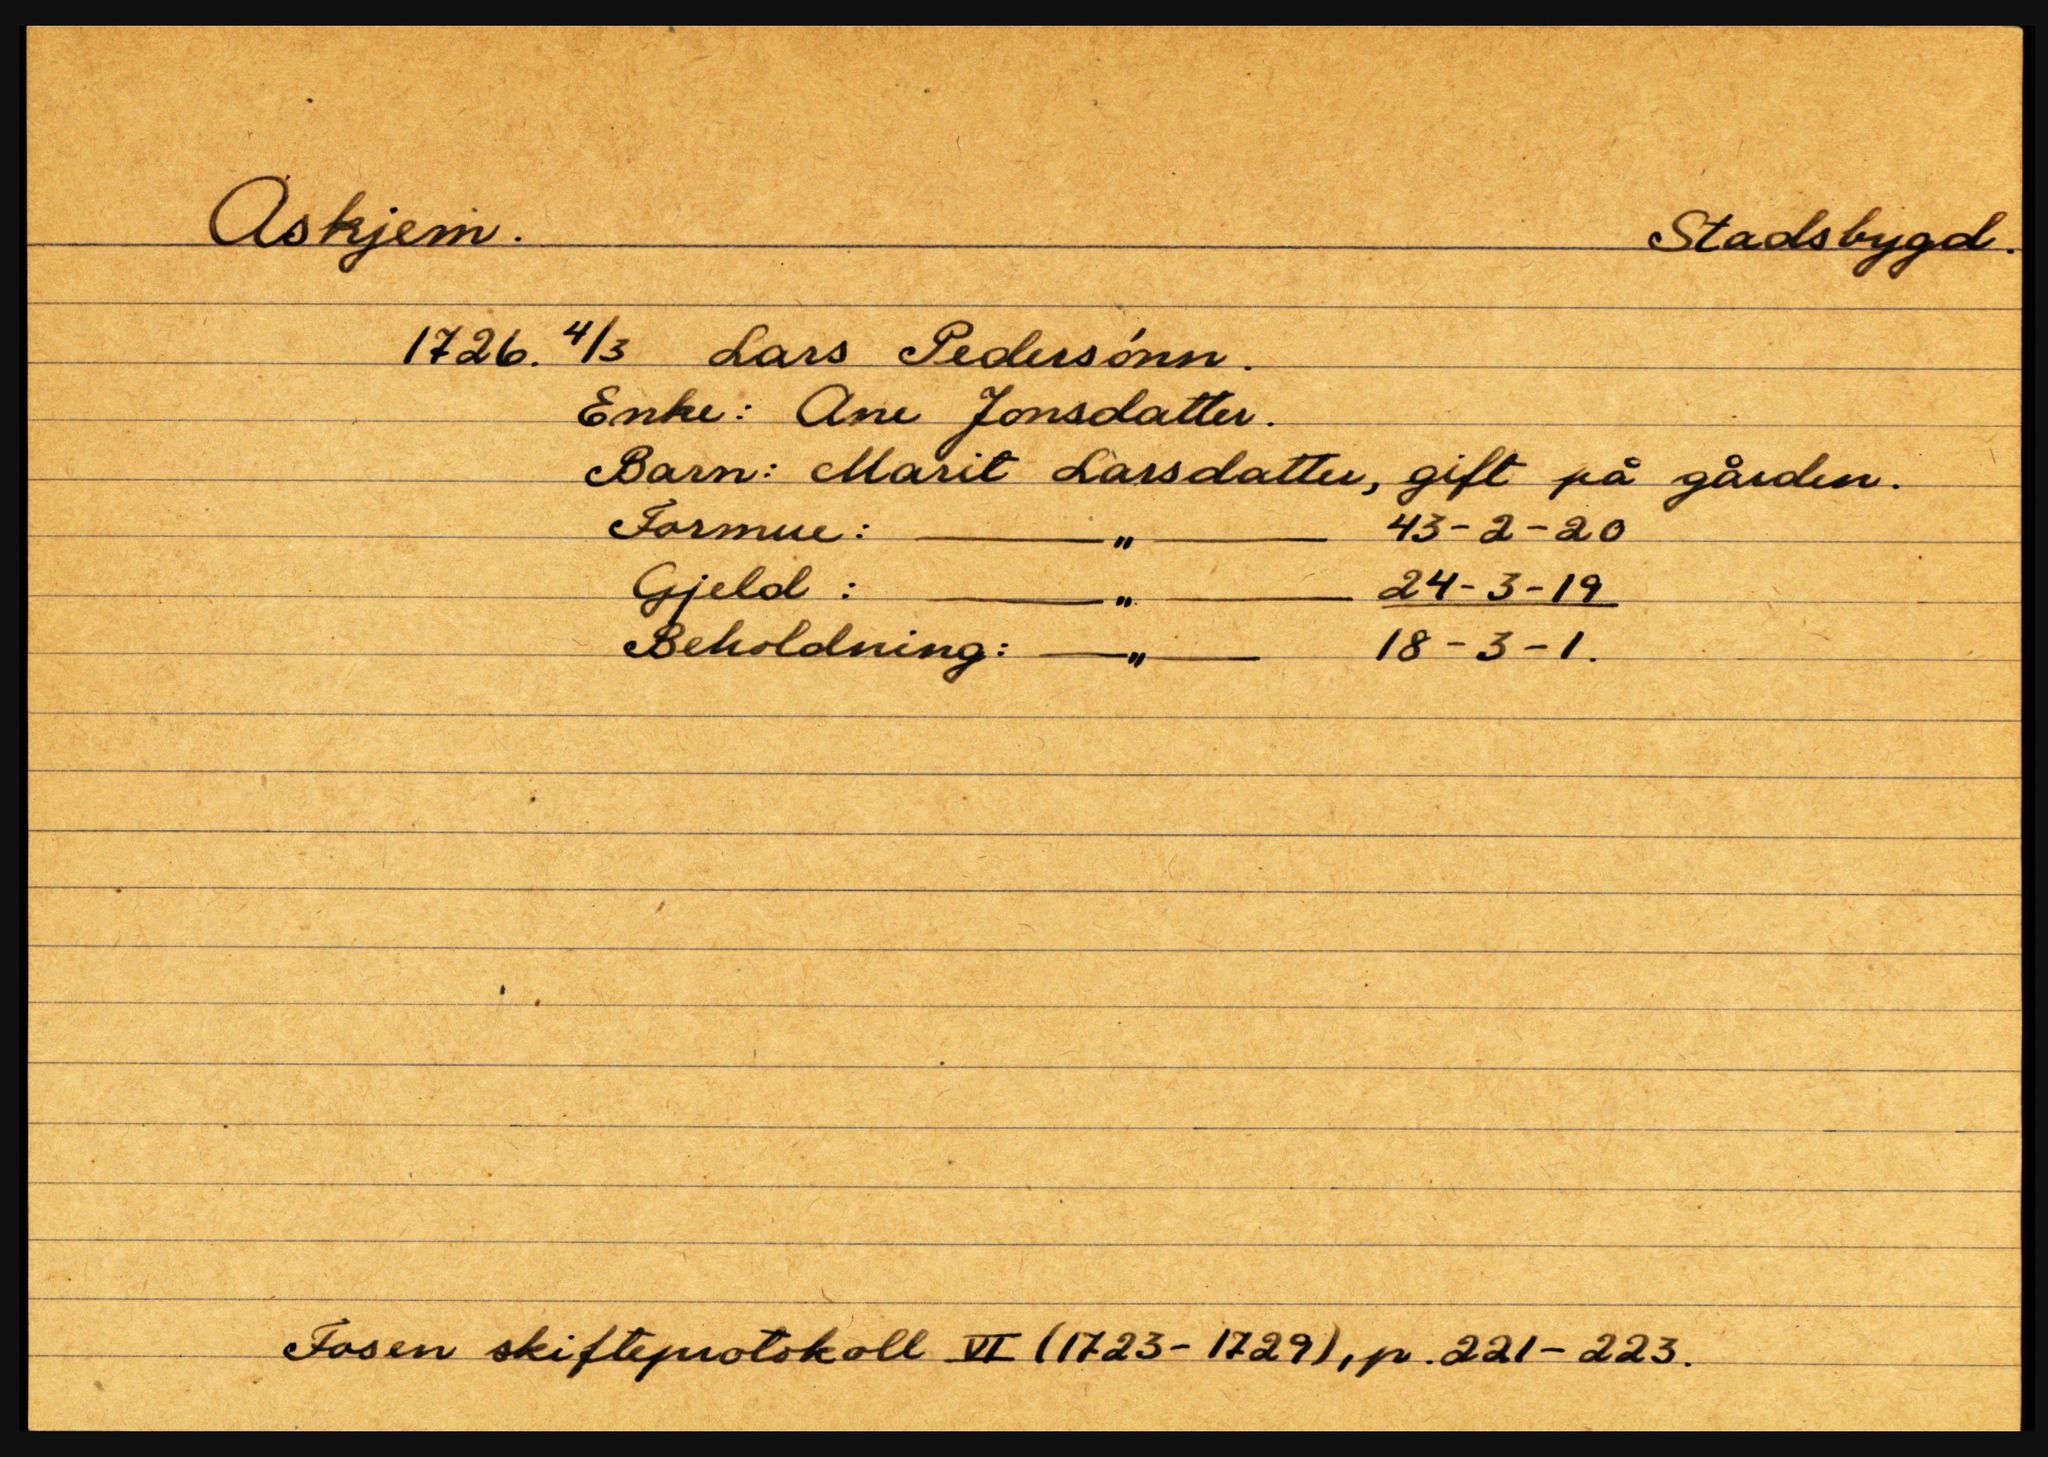 Askjem. Stadsbygd.
1726. 4/3 Lars Pedersønn.
Enke: Ane Jonsdatter.
Barn: Marit Larsdatter, gift på gården.
Formue: — „ — 43-2-20
Gjeld: — „ — 24-3-19
Beholdning: — „ — 18-3-1.
Fosen skifteprotokoll VI (1723-1729), p. 221-223.